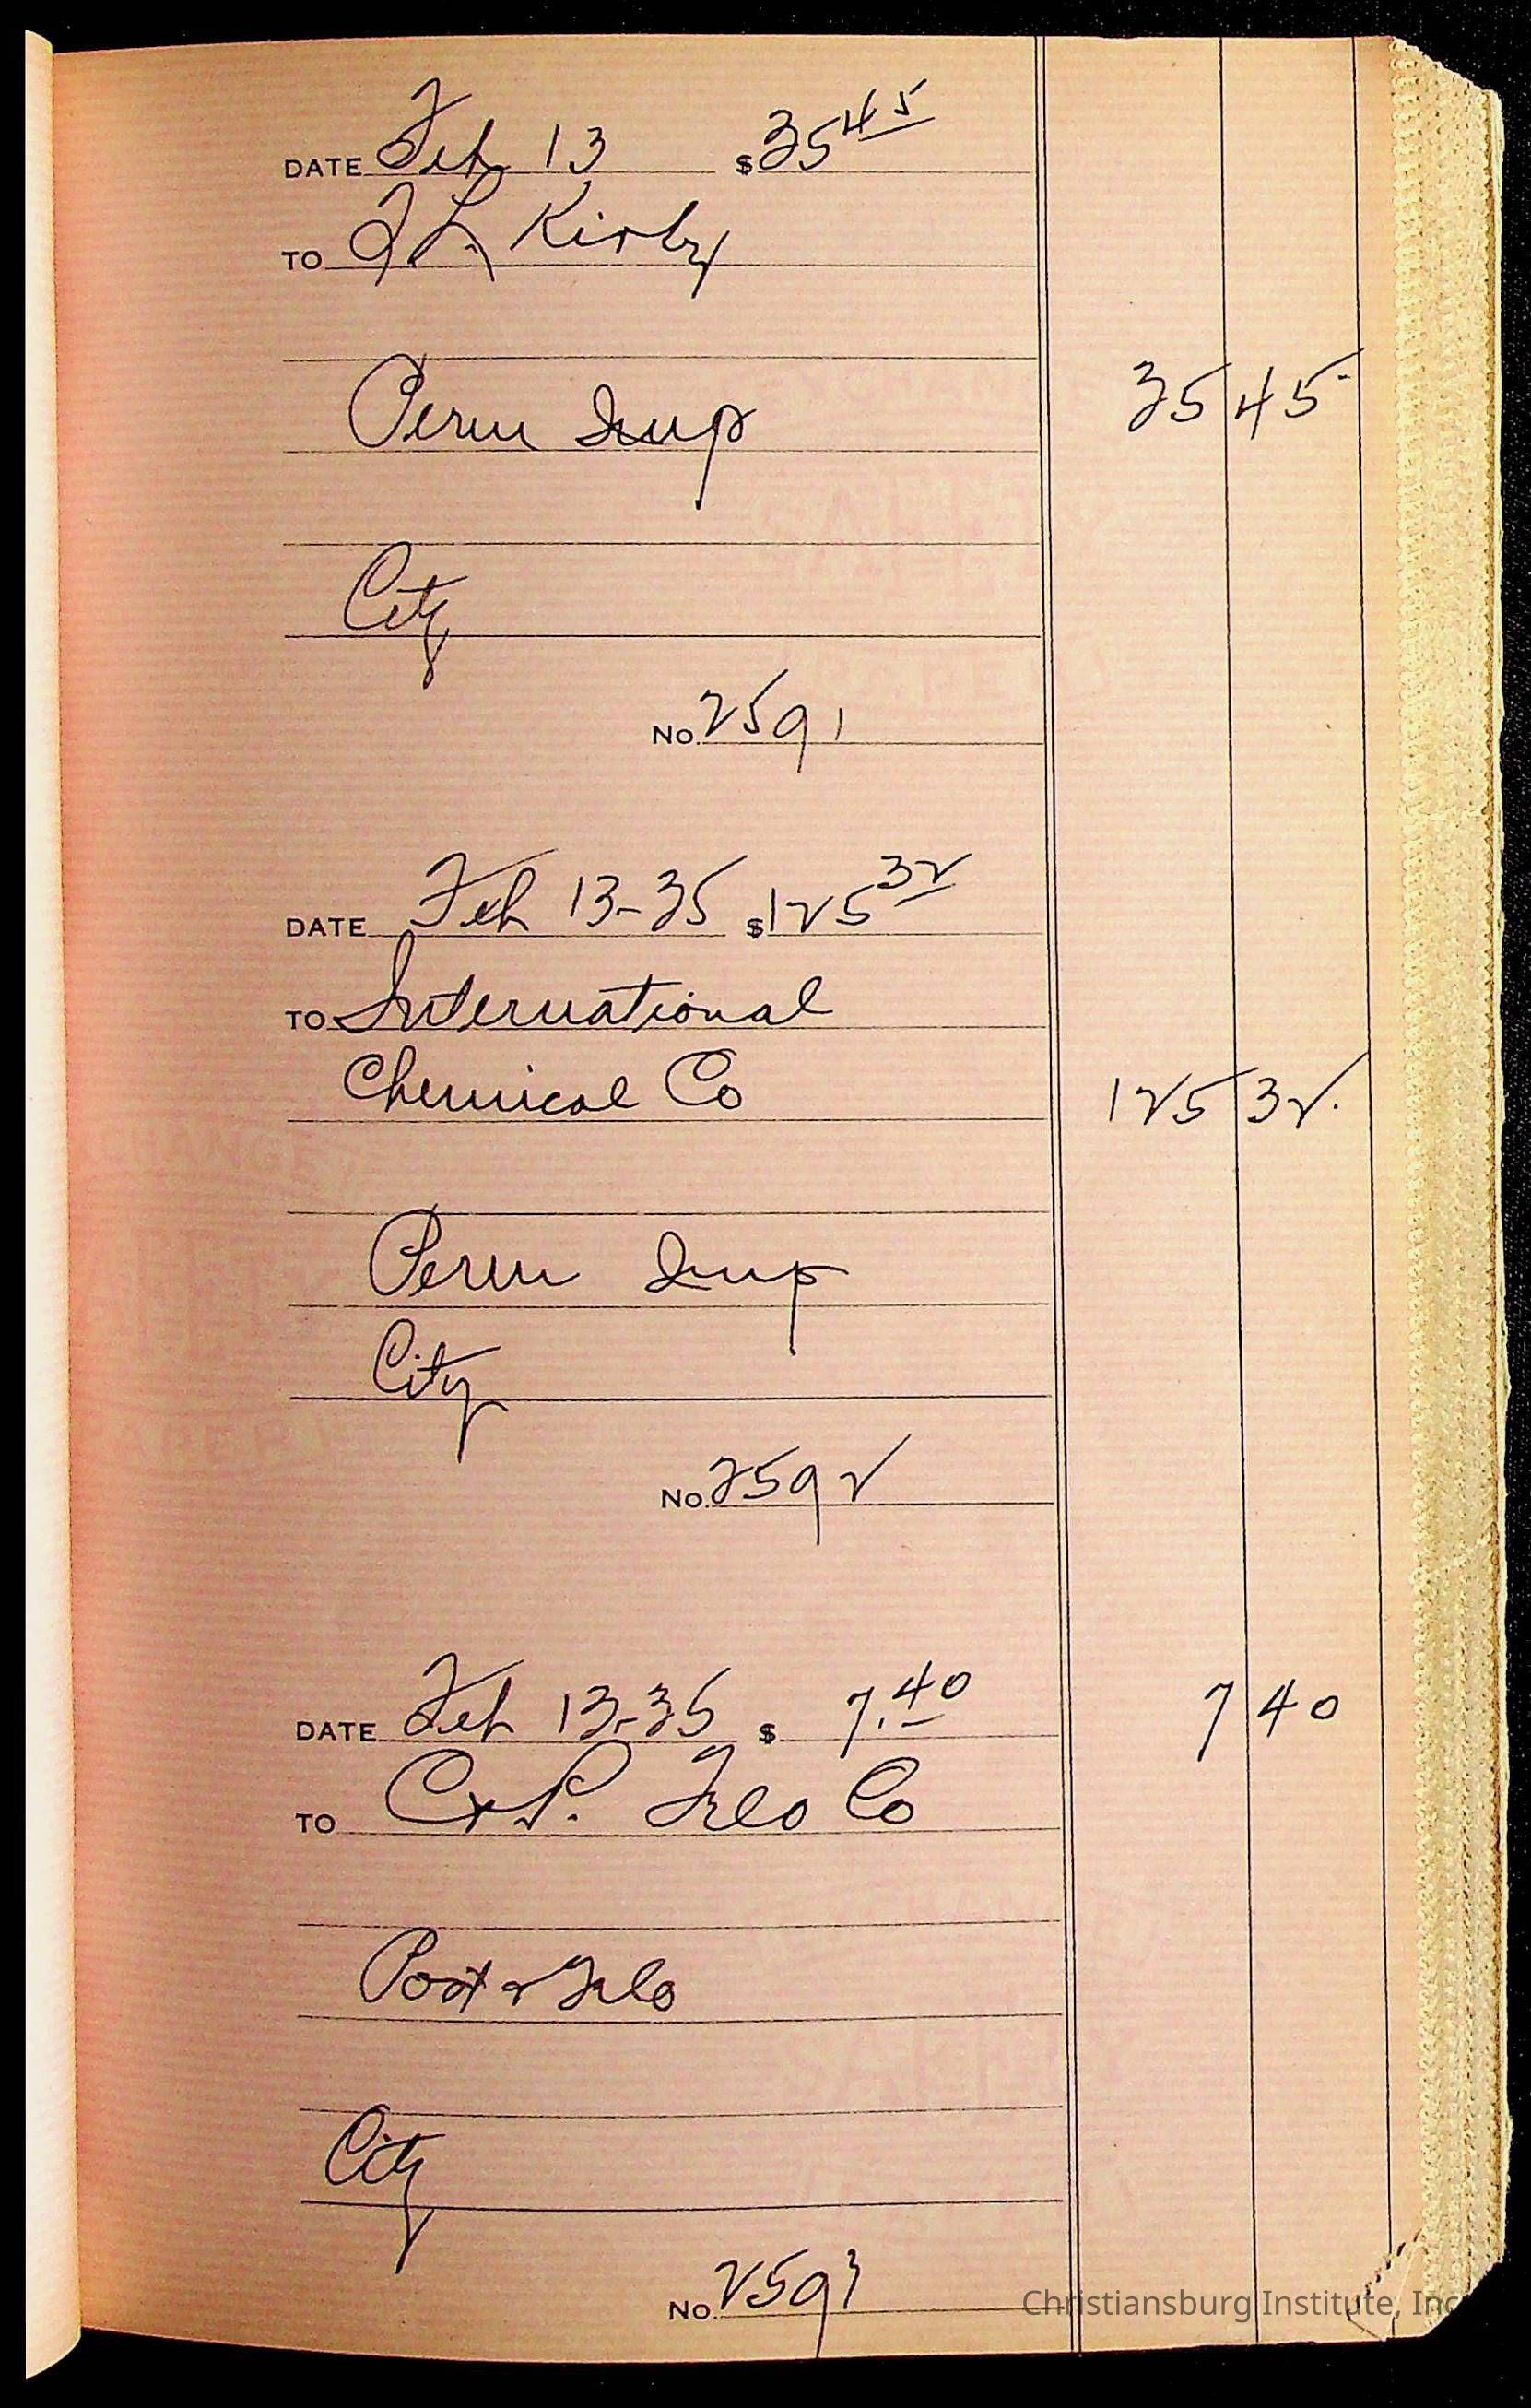 DATE Feb 13 $35 45
TO F L Kirby
Perm Imp 35 45
City
No. 2591
DATE Feb 13-35 $125 32
TO International
Chemical Co 125 32.
Perm Imp
City
No. 2592
DATE Feb 13-35 $ 7.40 7 40
TO C & P. Tele Co
Post & Tele
City
No. 2593
Christiansburg Institute, Inc